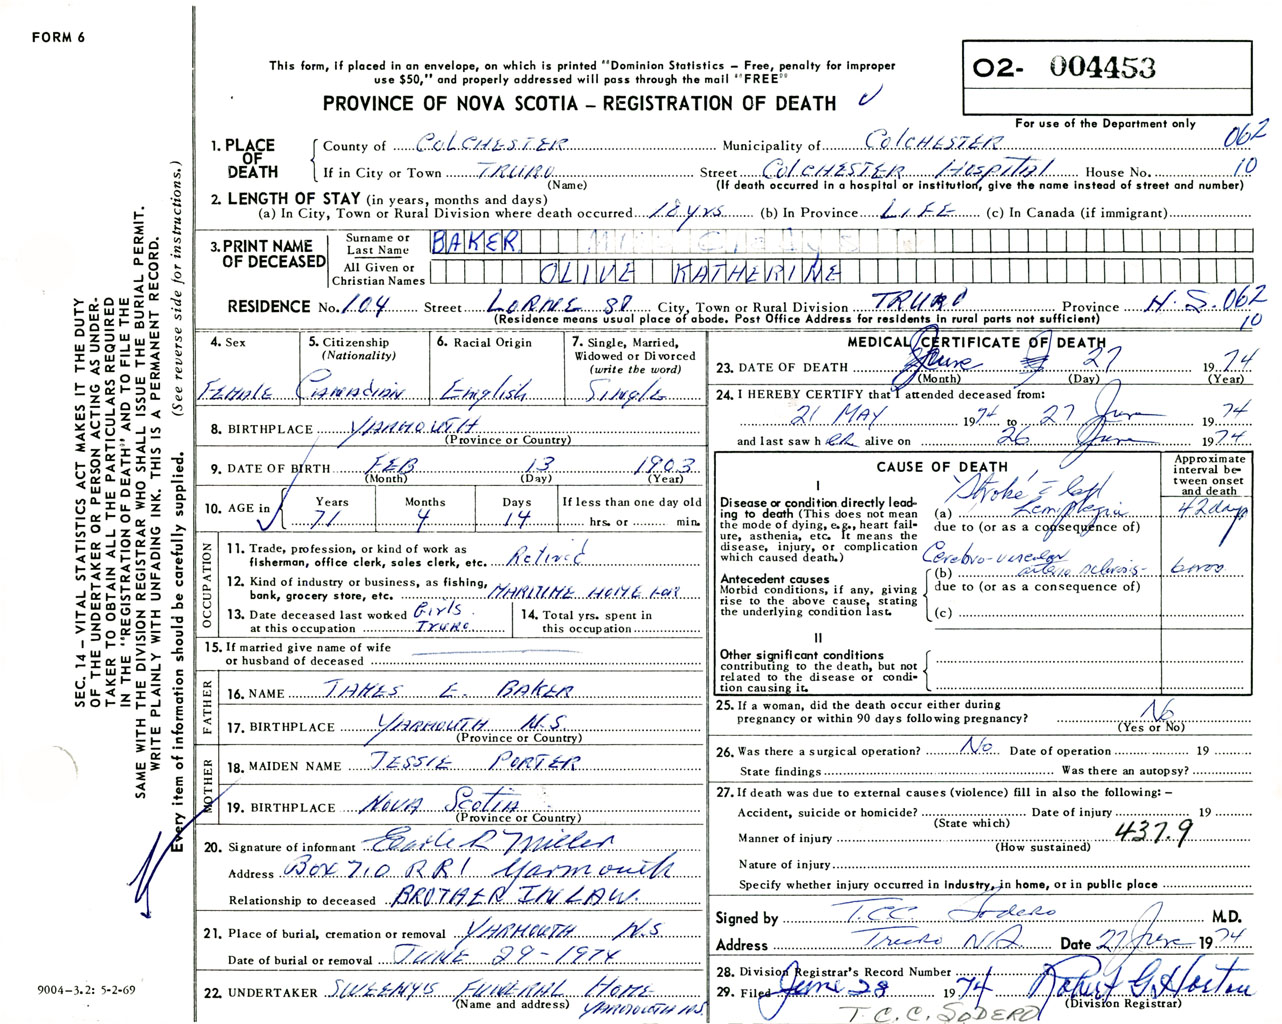 FORM 6
This form, if placed in an envelope, on which is printed "Dominion Statistics – Free, penalty for improper
use $50," and properly addressed will pass through the mail "FREE"
PROVINCE OF NOVA SCOTIA – REGISTRATION OF DEATH
02- 004453
For use of the Department only
062
10
1. PLACE OF DEATH
County of COLCHESTER Municipality of COLCHESTER
If in City or Town TRURO Street COLCHESTER HOSPITAL House No.
(Name) (If death occurred in a hospital or institution, give the name instead of street and number)
2. LENGTH OF STAY (in years, months and days)
(a) In City, Town or Rural Division where death occurred 18 yrs (b) In Province LIFE (c) In Canada (if immigrant)
3. PRINT NAME OF DECEASED
Surname or Last Name BAKER
All Given or Christian Names OLIVE KATHERINE
RESIDENCE No. 104 Street LORNE ST City, Town or Rural Division TRURO Province N.S. 062
(Residence means usual place of abode. Post Office Address for residents in rural parts not sufficient) 10
4. Sex
Female
5. Citizenship
(Nationality)
Canadian
6. Racial Origin
English
7. Single, Married,
Widowed or Divorced
(write the word)
Single
8. BIRTHPLACE YARMOUTH
(Province or Country)
9. DATE OF BIRTH FEB 13 1903
(Month) (Day) (Year)
10. AGE in
Years Months Days If less than one day old
71 4 14 hrs. or min.
OCCUPATION
11. Trade, profession, or kind of work as
fisherman, office clerk, sales clerk, etc. Retired
12. Kind of industry or business, as fishing,
bank, grocery store, etc. MARITIME HOME FOR
13. Date deceased last worked Girls
at this occupation Truro
14. Total yrs. spent in
this occupation
15. If married give name of wife
or husband of deceased
FATHER
16. NAME JAMES E. BAKER
17. BIRTHPLACE YARMOUTH N.S.
(Province or Country)
MOTHER
18. MAIDEN NAME JESSIE PORTER
19. BIRTHPLACE NOVA SCOTIA
(Province or Country)
20. Signature of informant Earle R Miller
Address Box 710 RR1 Yarmouth
Relationship to deceased BROTHER IN LAW.
21. Place of burial, cremation or removal YARMOUTH N.S
Date of burial or removal JUNE 29-1974
22. UNDERTAKER SWEENY'S FUNERAL HOME
(Name and address) YARMOUTH N.S.
MEDICAL CERTIFICATE OF DEATH
23. DATE OF DEATH June 27 1974
(Month) (Day) (Year)
24. I HEREBY CERTIFY that I attended deceased from:
21 MAY 1974 to 27 June 1974
and last saw her alive on 26 June 1974
CAUSE OF DEATH
Approximate
interval be-
tween onset
and death
I
Disease or condition directly lead-
ing to death (This does not mean
the mode of dying, e.g., heart fail-
ure, asthenia, etc. It means the
disease, injury, or complication
which caused death.)
Stroke c̄ left
(a) hemiplegia 42 days
due to (or as a consequence of)
Antecedent causes
Morbid conditions, if any, giving
rise to the above cause, stating
the underlying condition last.
Cerebro-vascular
(b) arterio sclerosis
due to (or as a consequence of)
(c)
II
Other significant conditions
contributing to the death, but not
related to the disease or condi-
tion causing it.
25. If a woman, did the death occur either during
pregnancy or within 90 days following pregnancy? No
(Yes or No)
26. Was there a surgical operation? No Date of operation 19
State findings Was there an autopsy?
27. If death was due to external causes (violence) fill in also the following: –
Accident, suicide or homicide? Date of injury 19
(State which)
Manner of injury 437.9
(How sustained)
Nature of injury
Specify whether injury occurred in industry, in home, or in public place
Signed by T.C.C. Sodero M.D.
Address Truro N.S. Date 27 June 1974
28. Division Registrar's Record Number
29. Filed June 28 1974 Robert G. Horton
(Division Registrar)
T.C.C. SODERO
SEC. 14 – VITAL STATISTICS ACT MAKES IT THE DUTY
OF THE UNDERTAKER OR PERSON ACTING AS UNDER-
TAKER TO OBTAIN ALL THE PARTICULARS REQUIRED
IN THE "REGISTRATION OF DEATH" AND TO FILE THE
SAME WITH THE DIVISION REGISTRAR WHO SHALL ISSUE THE BURIAL PERMIT.
WRITE PLAINLY WITH UNFADING INK. THIS IS A PERMANENT RECORD.
Every item of information should be carefully supplied. (See reverse side for instructions.)
9004-3.2: 5-2-69